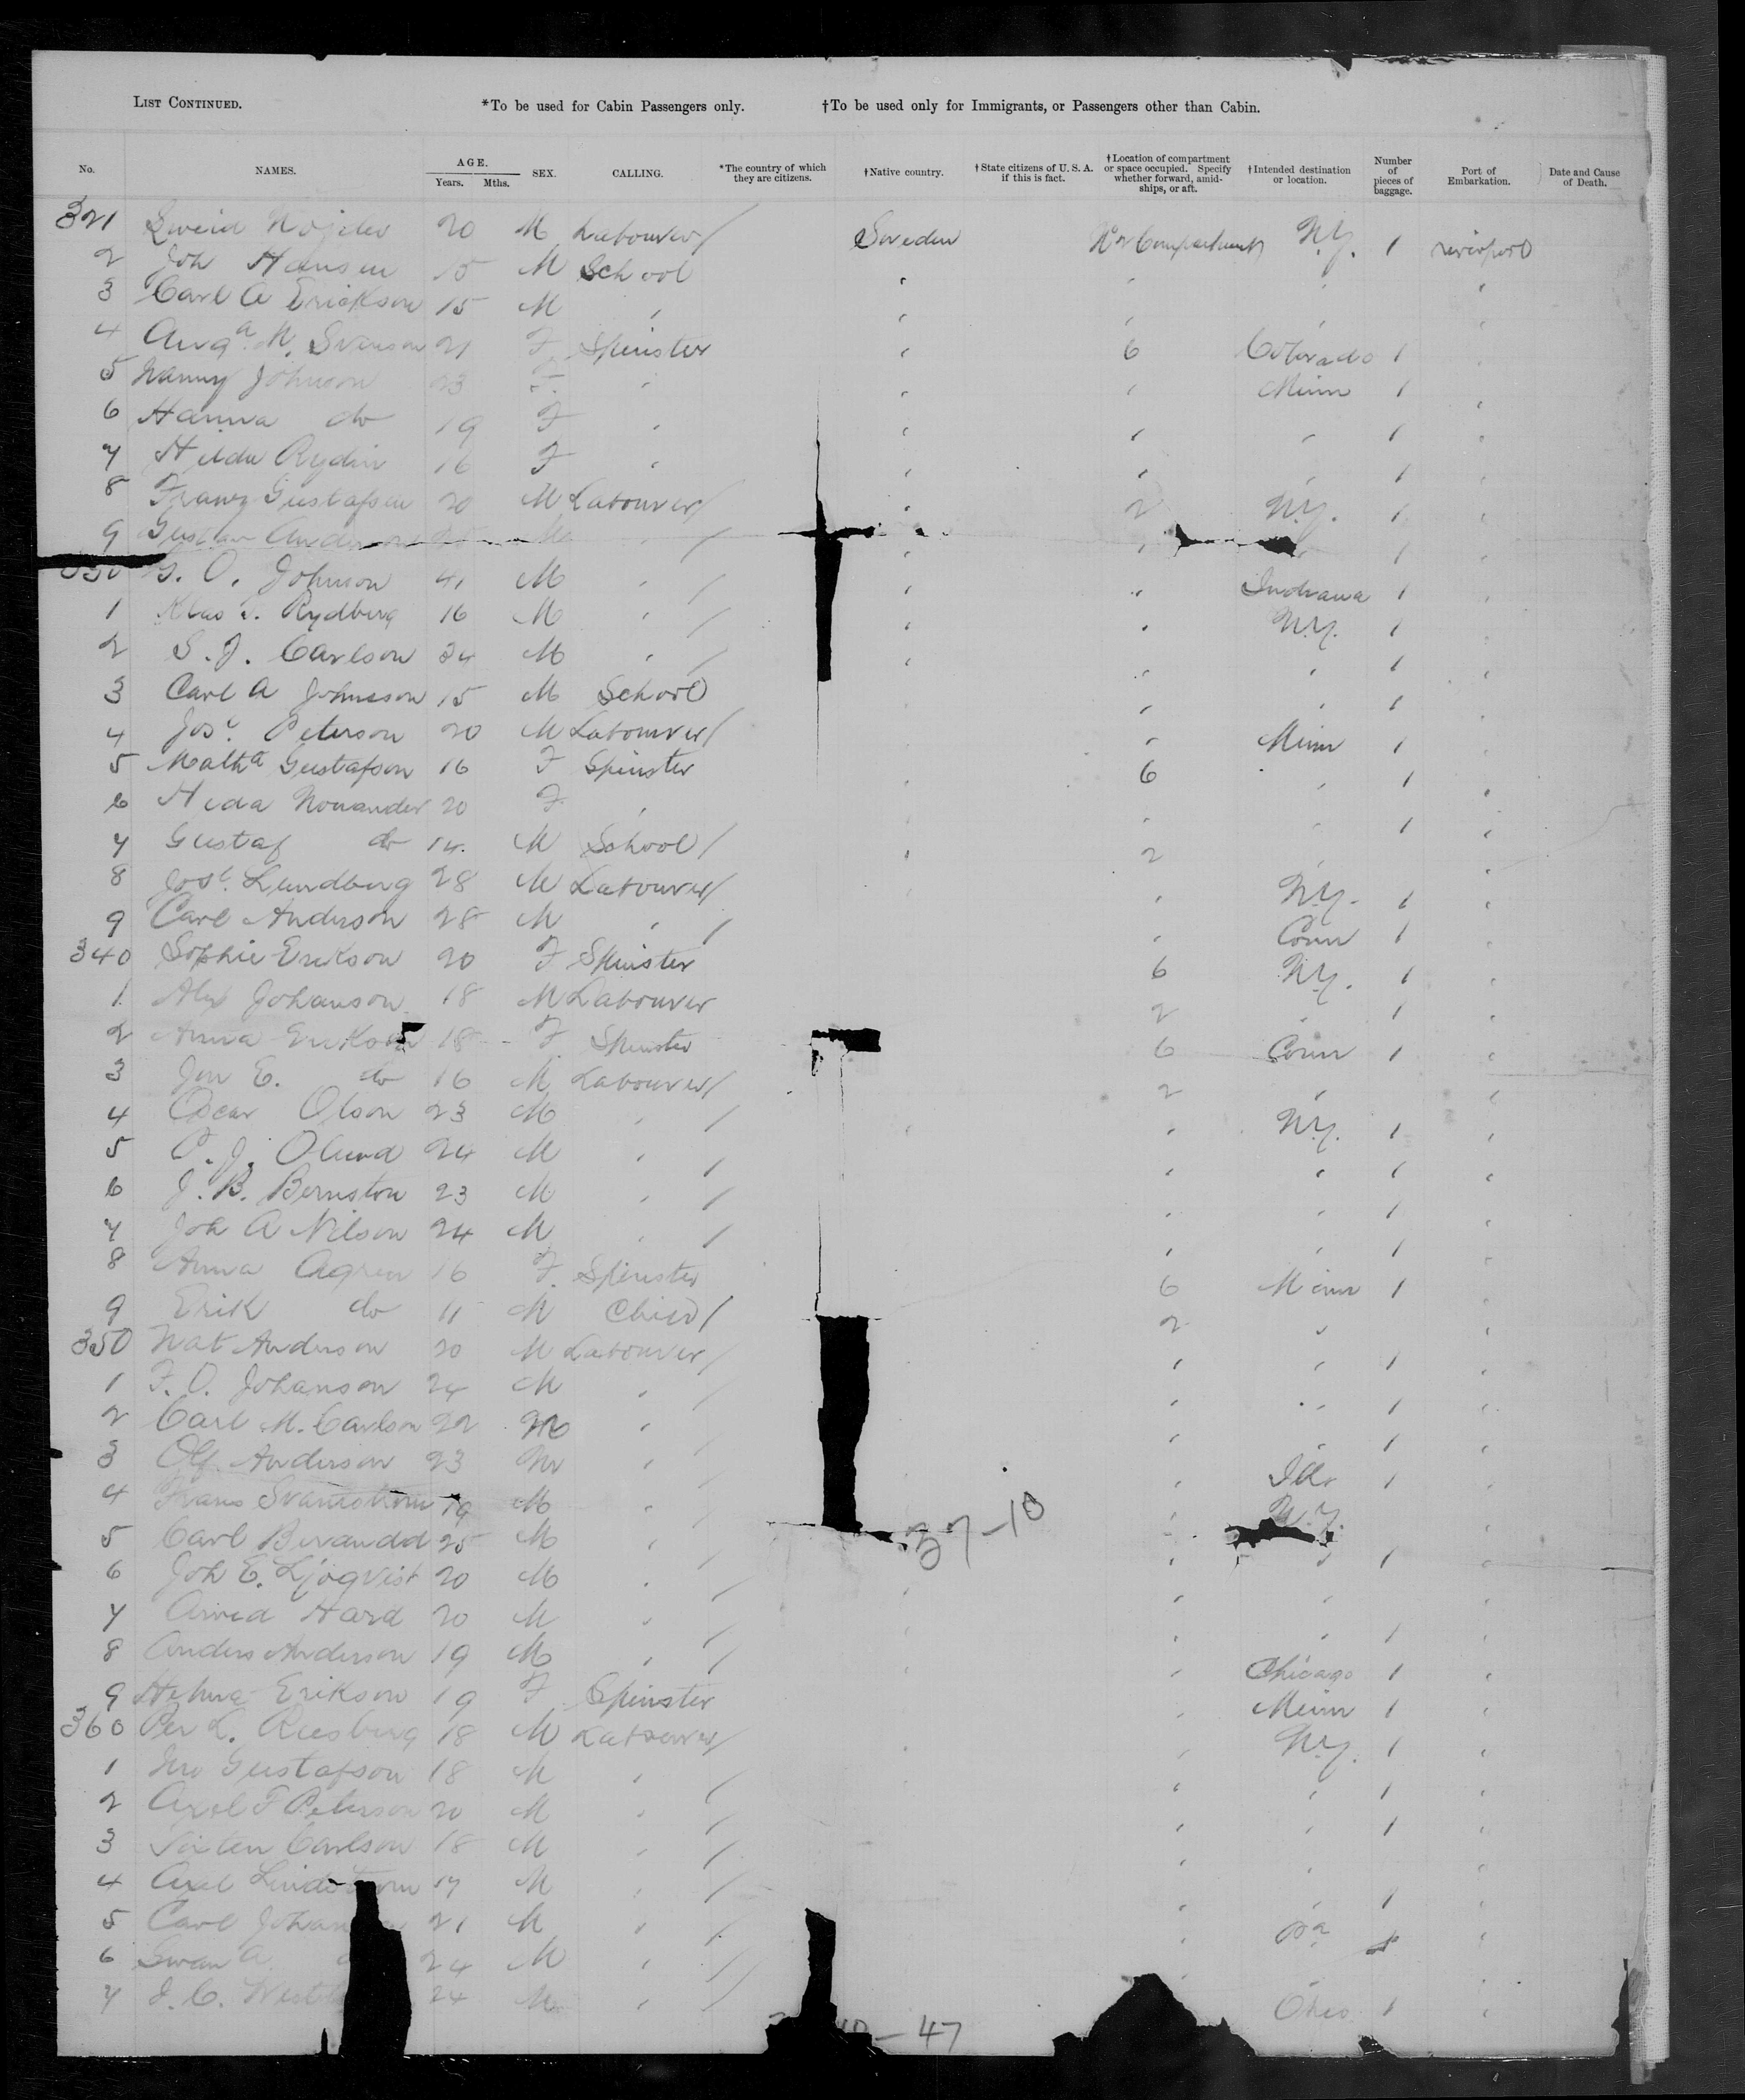 LIST CONTINUED. *To be used for Cabin Passengers only. †To be used only for Immigrants, or Passengers other than Cabin.
No. NAMES. AGE. Years. Mths. SEX. CALLING. *The country of which they are citizens. †Native country. †State citizens of U. S. A. if this is fact. †Location of compartment or space occupied. Specify whether forward, amidships, or aft. †Intended destination or location. Number of pieces of baggage. Port of Embarkation. Date and Cause of Death.
321 20 M Labourer / Sweden No 2 Compartment N.Y. 1 Liverpool
2 Joh Hansen 15 M School " " " "
3 Carl A Erickson 15 M " " " " "
4 Auga. M. Svenson 21 F Spinster " 6 Colorado 1 "
5 Nanny Johnson 23 F. " " " Minn 1 "
6 Hanna do 19 F " " " " 1 "
7 Hilda Rydin 16 F " " " " 1 "
8 Franz Gustafson 20 M Labourer / " 2 N.Y. 1 "
9 Gustav Anderson M " / " " 1 "
330 G. O. Johnson 41 M " / " " Indiana 1 "
1 Klas Rydberg 16 M " / " " N.Y. 1 "
2 S. J. Carlson 34 M " / " " " 1 "
3 Carl A Johnsson 15 M School " " 1 "
4 Jos. Peterson 20 M Labourer / " Minn 1 "
5 Matha Gustafson 16 F Spinster 6 " 1 "
6 Heda Nonander 20 F " " " 1 "
7 Gustaf do 14. M School / " 2 " "
8 Jos. Lundberg 28 M Labourer / " N.Y. 1 "
9 Carl Anderson 28 M " / " Conn 1 "
340 Sophie Erikson 20 F Spinster 6 N.Y. 1 "
1 Alex Johanson 18 M Labourer 2 " 1 "
2 Anna Erikson 18 F Spinster 6 Conn 1 "
3 Jon E. do 16 M Labourer / 2 " "
4 Oscar Olson 23 M " / " " N.Y. 1 "
5 Olund 24 M " / " " 1 "
6 J. B. Bernston 23 M " / " " 1 "
7 Joh A Nilson 24 M " / " " 1 "
8 Anna Agren 16 F. Spinster 6 Minn 1 "
9 Erik do 11 M Child / 2 " "
350 Nat Anderson 20 M Labourer / " " 1 "
1 F. O. Johanson 24 M " / " " 1 "
2 Carl M. Carlson 22 M " / " " 1 "
3 Olf Anderson 23 M " / " Ills 1 "
4 Frans 19 M " / " N.Y. "
37-10
5 Carl 25 M " / " " 1 "
6 Joh E. Ljoqvist 20 M " / " " " "
7 Arvid Hard 20 M " / " " 1 "
8 Anders Anderson 19 M " / " Chicago 1 "
9 Erikson 19 F Spinster " Minn 1 "
360 Per L. 18 M Labourer / " N.Y. 1 "
1 Jno Gustafson 18 M " / " " 1 "
2 Axel F Peterson 20 M " / " " 1 "
3 Carlson 18 M " / " " "
4 Axel Lindstrom 17 M " / " " 1 "
5 Carl Johan 21 M " / " Pa "
6 Swan A 24 M " / " "
7 24 M " / Ohio 1 "
— 47